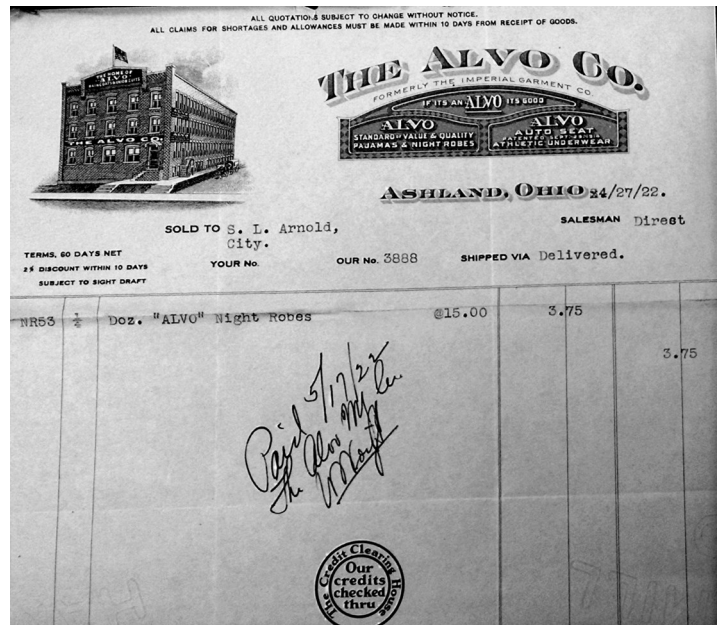 ALL QUOTATIONS SUBJECT TO CHANGE WITHOUT NOTICE.
ALL CLAIMS FOR SHORTAGES AND ALLOWANCES MUST BE MADE WITHIN 10 DAYS FROM RECEIPT OF GOODS.
THE HOME OF
ALVO
THE ALVO CO.
THE ALVO CO.
FORMERLY THE IMPERIAL GARMENT CO.
IF ITS AN ALVO ITS GOOD
ALVO
STANDARD OF VALUE & QUALITY
PAJAMAS & NIGHT ROBES
ALVO
AUTO SEAT
ATHLETIC UNDERWEAR
ASHLAND, OHIO 4/27/22.
SOLD TO S. L. Arnold,
City.
SALESMAN Direct
TERMS, 60 DAYS NET
2% DISCOUNT WITHIN 10 DAYS
SUBJECT TO SIGHT DRAFT
YOUR No.
OUR No. 3888
SHIPPED VIA Delivered.
NR53 ¼ Doz. "ALVO" Night Robes @15.00 3.75
3.75
Paid 5/17/22
The Alvo Mfg Co
The Credit Clearing House
Our
credits
checked
thru